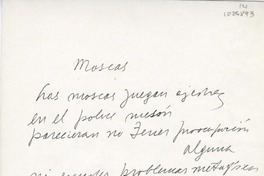 14
1025893
Moscas
Las moscas juegan ajedrez
en el pobre mesón
parecieran no Tener preocupación
alguna
ni problemas metafísicos